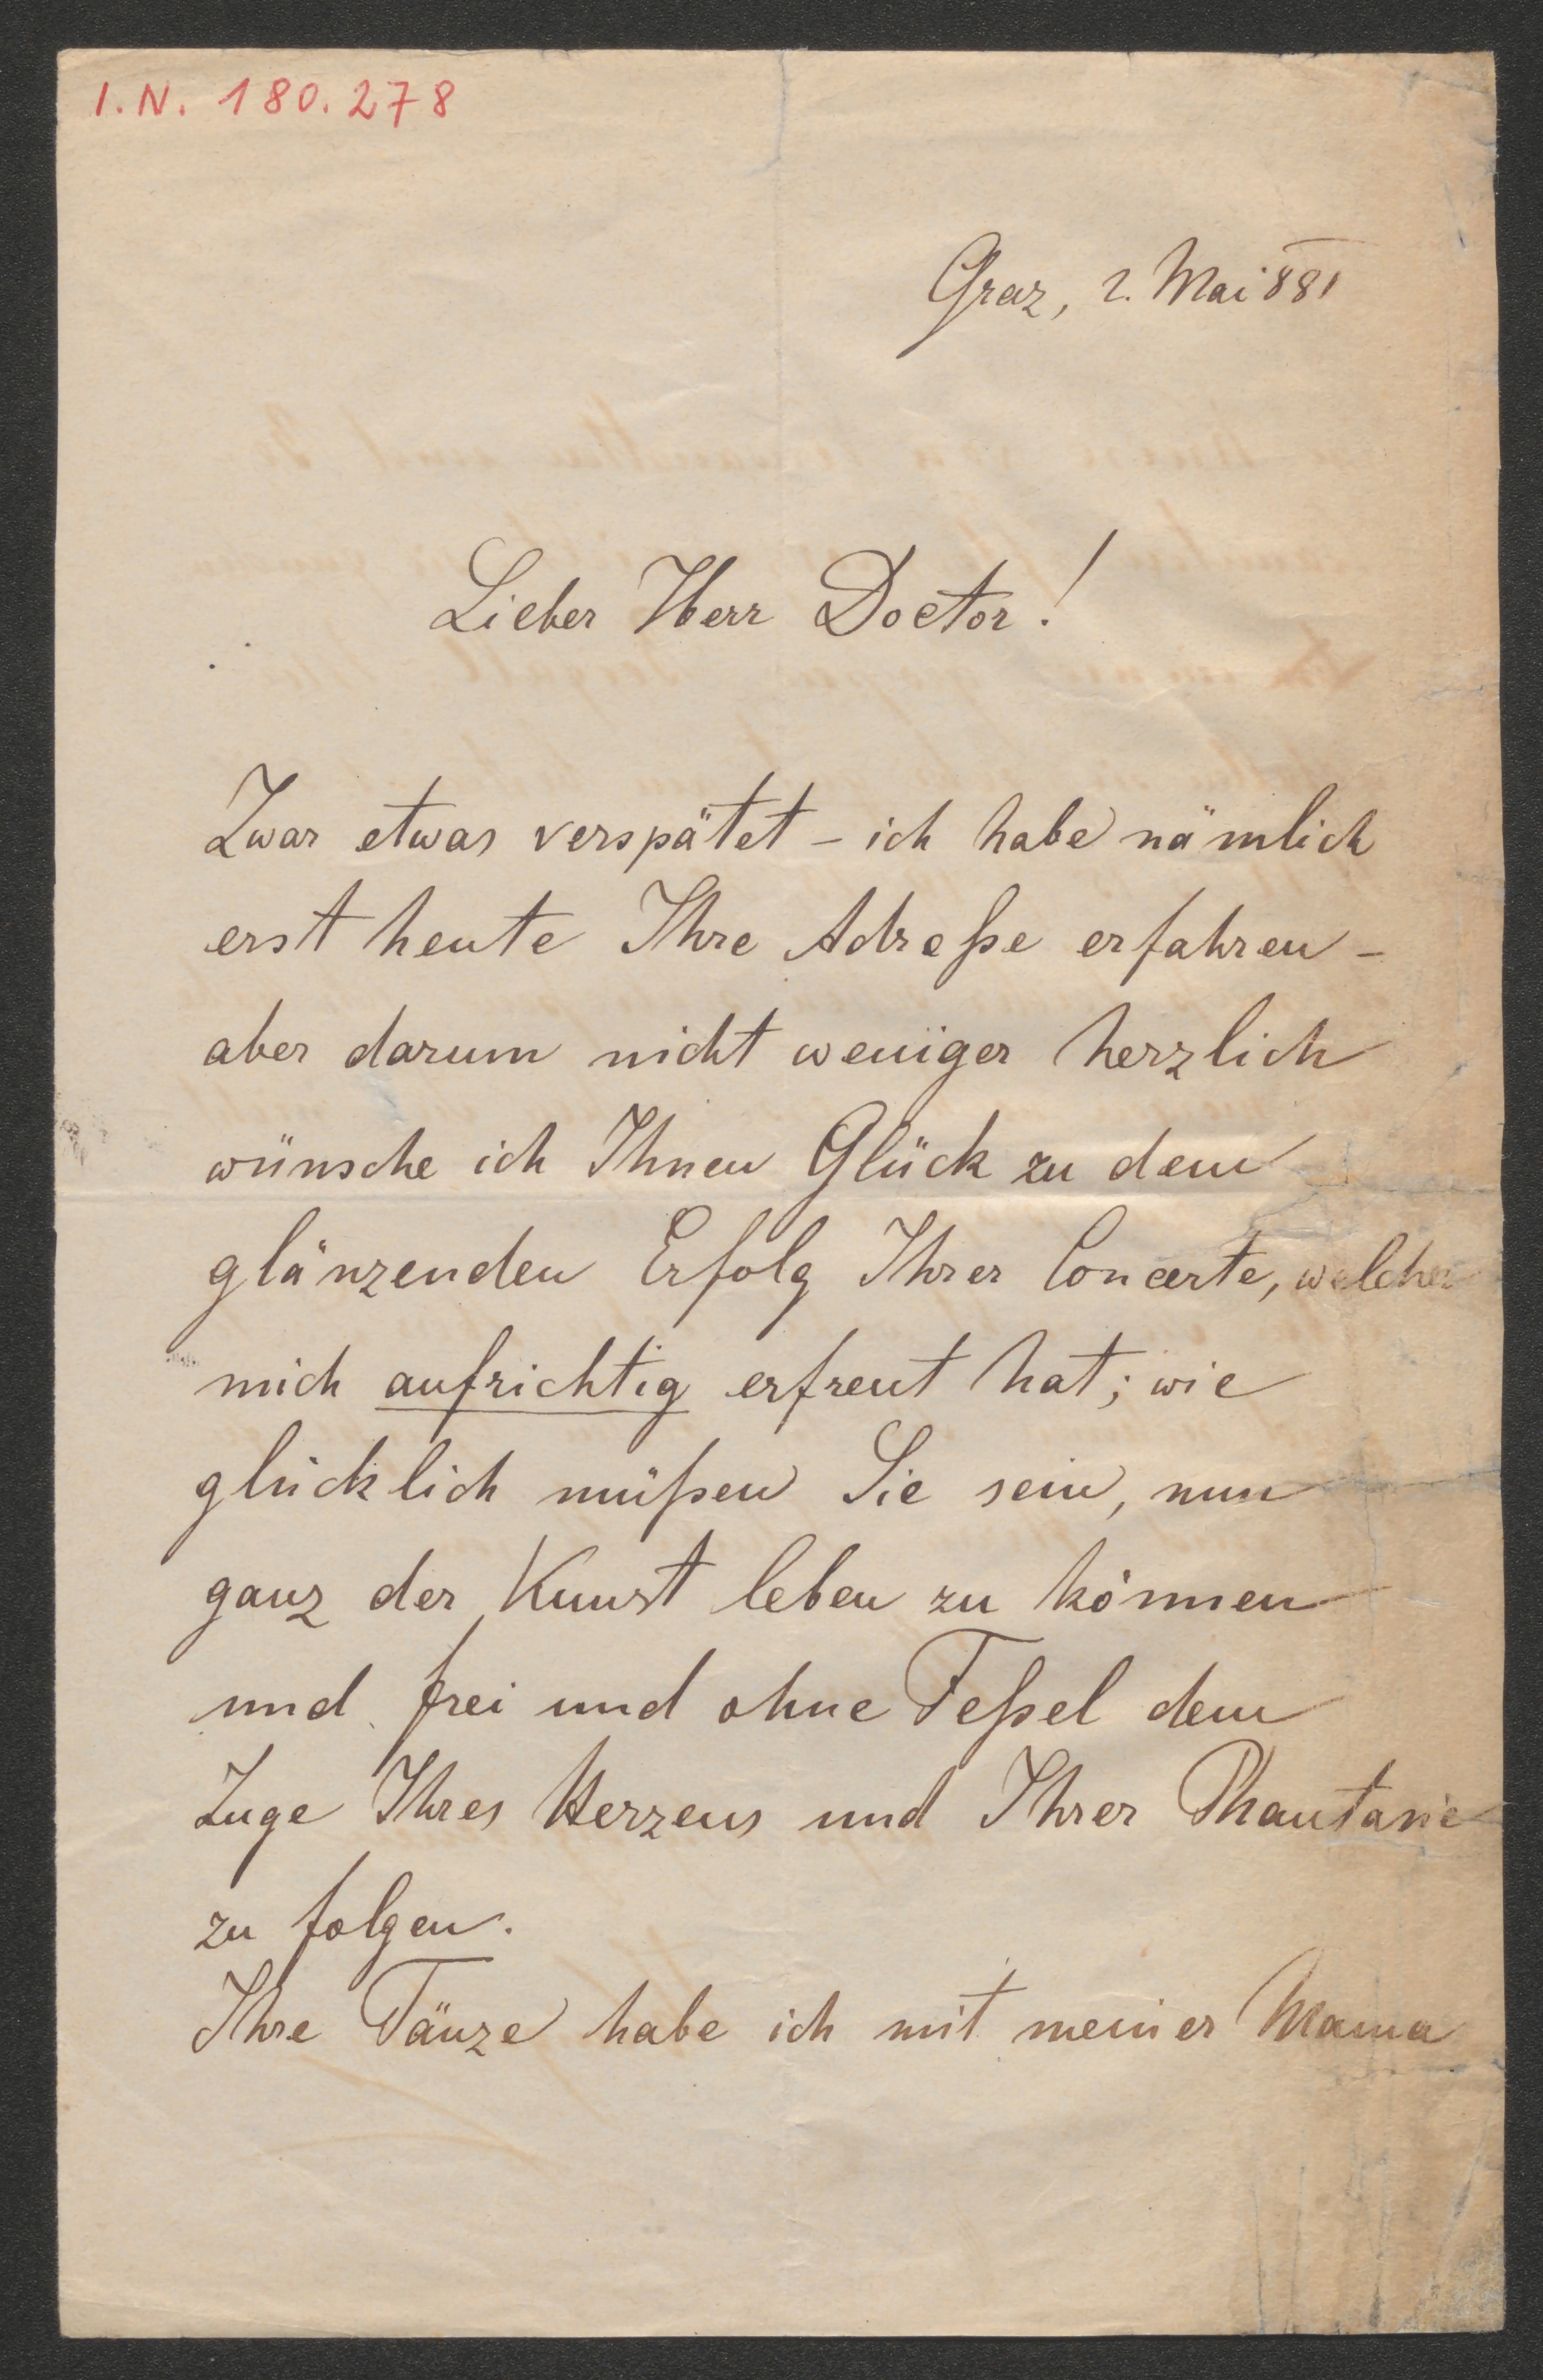 I.N. 180.278
Graz, 2. Mai 881
Lieber Herr Doctor!
Zwar etwas verspätet – ich habe nämlich
erst heute Ihre Adreße erfahren –
aber darum nicht weniger herzlich
wünsche ich Ihnen Glück zu dem
glänzenden Erfolg Ihrer Concerte, welcher
mich aufrichtig erfreut hat; wie
glücklich müßen Sie sein, nun
ganz der Kunst leben zu können
und frei und ohne Feßel dem
Zuge Ihres Herzens und Ihrer Phantasie
zu folgen.
Ihre Tänze habe ich mit meiner Mama